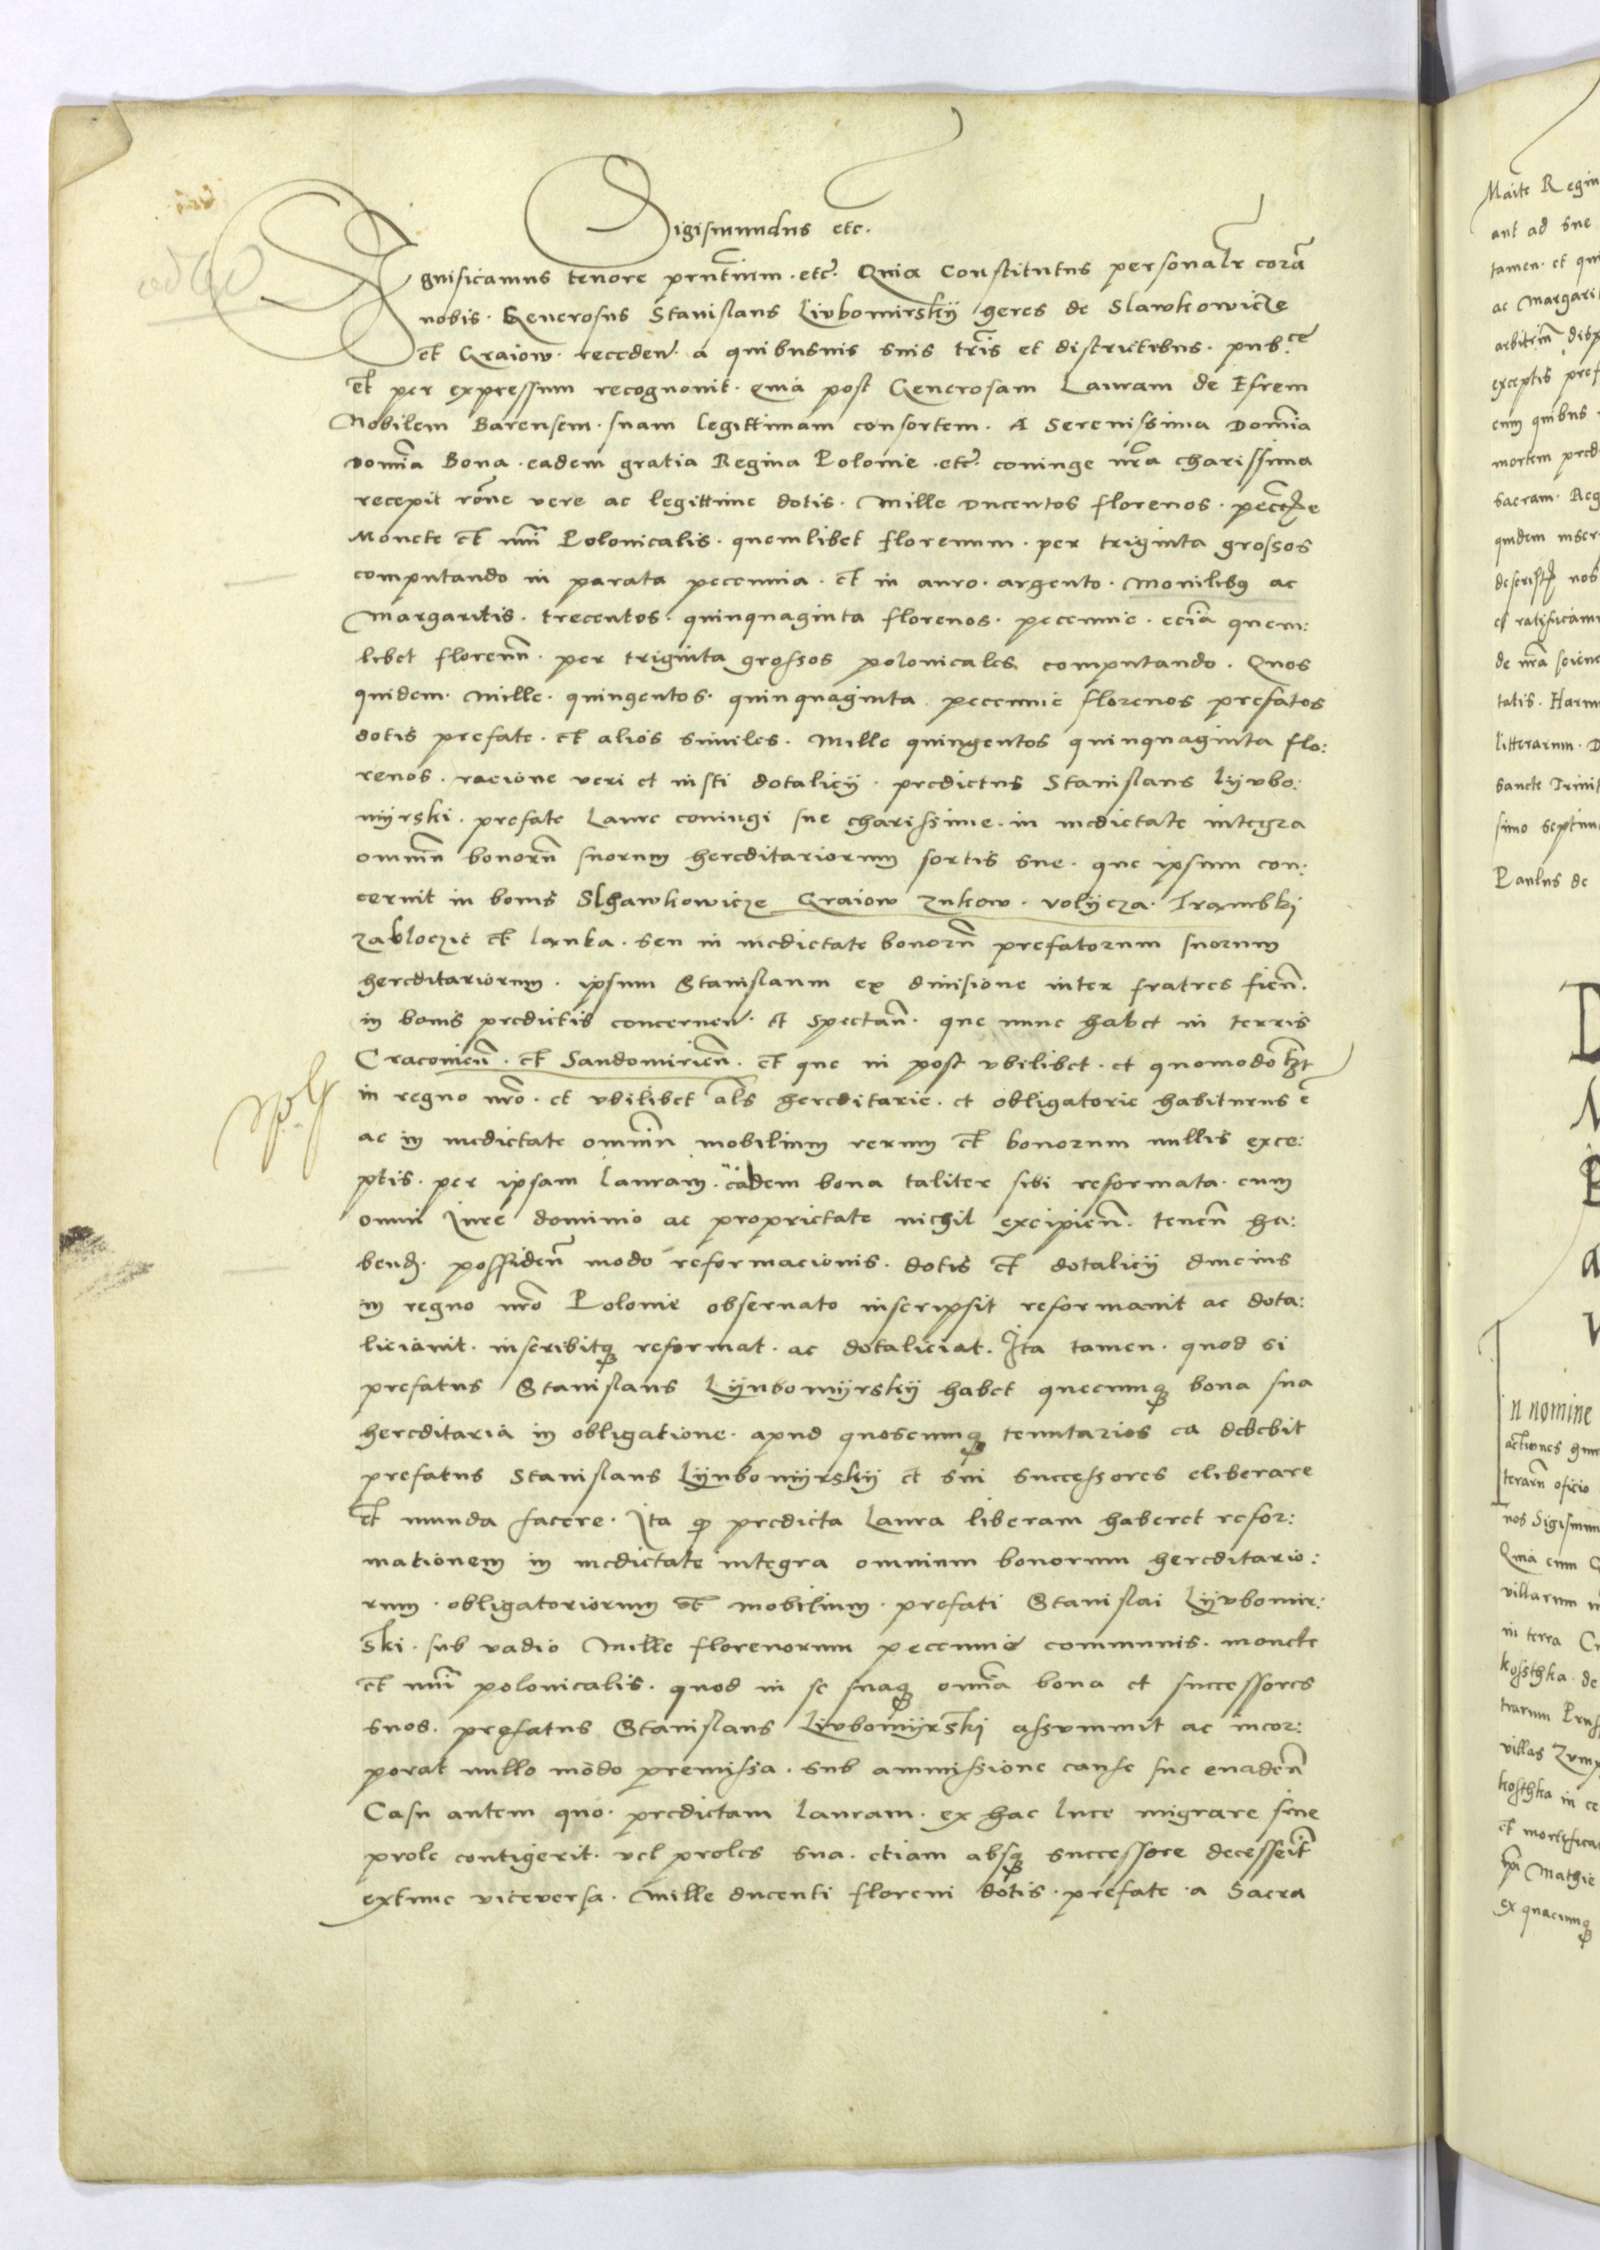 Sigismundus etc.
Significamus tenore prntium. etc. Quia Constitutus personalr corã
nobis. Generosus Stanislaus Liubomirsky heres de Slawkowicze
et Graiow. receden. a quibusuis suis tris et districtibus. pubce
et per expressum recognouit. quia post Generosam Lauram de Efrem
Nobilem Barensem. suam legittimam consortem. A Serenissima Domĩa
Domĩa Bona. eadem gratia Regina Polonie. etc. coniuge nrã charissima
recepit rõne vere ac legittime dotis. Mille Ducentos florenos.
Monete et nũi Polonicalis. quemlibet florenum. per triginta grossos
computando in parata pecunia. et in auro. argento. Monilibꝫ ac
Margaritis. trecentos. quinquaginta florenos. pecunie. eciã quem:
libet florenũ. per triginta grossos polonicales computando. Quos
quidem. Mille. quingentos. quinquaginta. pecunie florenos prefatos
dotis prefate. et alios similes. Mille quingentos quinquaginta flo:
renos. racione veri et iusti dotalicij. predictus Stanislaus Lyubo:
myrski. prefate Laure coniugi sue charissime. in medietate integra
omniũ bonorũ suorum hereditariorum sortis sue. que ipsum con:
cernit in bonis Slhawkowicze Graiow zukow. volycza. Trambki
zabloczie et lanka. seu in medietate bonorũ prefatorum suorum
hereditariorum. ipsum Stanislaum ex diuisione inter fratres fien̄.
in bonis predictis concernen. et spectan̄. que nunc habet in terris
Cracouien̄. et Sandomirien̄. et que in post vbilibet. et quomodolzt
in regno nrõ. et vbilibet als hereditarie. et obligatorie habiturus ẽ
ac in medietate omniũ mobilium rerum et bonorum nullis exce:
ptis. per ipsam Lauram. eadem bona taliter sibi reformata. cum
omni Iure dominio ac proprietate nichil excipien̄. tenen̄ ha:
bend. possiden̄ modo reformacionis. dotis et dotalicij
in regno nrõ Polonie obseruato inscripsit reformauit ac dota:
liciauit. inscribitqꝫ reformat. ac dotaliciat. Ita tamen. quod si
prefatus Stanislaus Lyubomyrsky habet quecunqꝫ bona sua
hereditaria in obligatione. apud quoscunqꝫ tenutarios ea debebit
prefatus Stanislaus Lyubomyrsky et sui successores eliberare
et munda facere. Ita ꝙ predicta Laura liberam haberet refor:
mationem in medietate integra omnium bonorum hereditario:
rum. obligatoriorum et mobilium. prefati Stanislai Lyubomir:
ski. sub vadio Mille florenorum pecunie communis. monete
et nũi polonicalis. quod in se suaqꝫ omĩa bona et successores
suos. prefatus Stanislaus Liubomyrski assummit ac incor:
porat nullo modo premissa. sub ammissione cause sue euaden̄
Casu autem quo. predictam Lauram. ex hac luce migrare sine
prole contigerit. vel proles sua. etiam absqꝫ successore decesserit
extunc viceversa. Mille ducenti floreni dotis. prefate. a Sacra
Maite Regin
ant ad sue
tamen. et qui
ac Margarit
exceptis pref
cum quibus
mortem pred
sacram. Reg
quidem inscr
de nrã scien
litterarum. D
Sancte Trinit
simo septim
Paulus de
In nomine
terarũ oficio
nos Sigismun
Quia cum G
villarum
in terra Cr
kossthka. de
trarum Prus
villas
kosthka in ce
et mortifica
Mathie
ex quacunqꝫ